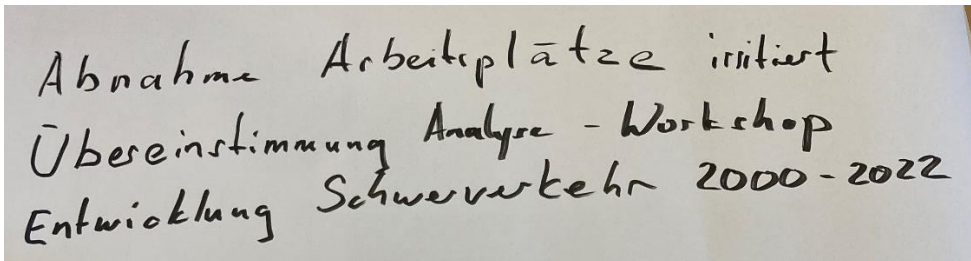 Abnahme Arbeitsplätze irritiert
Übereinstimmung Analyse - Workshop
Entwicklung Schwerverkehr 2000 - 2022